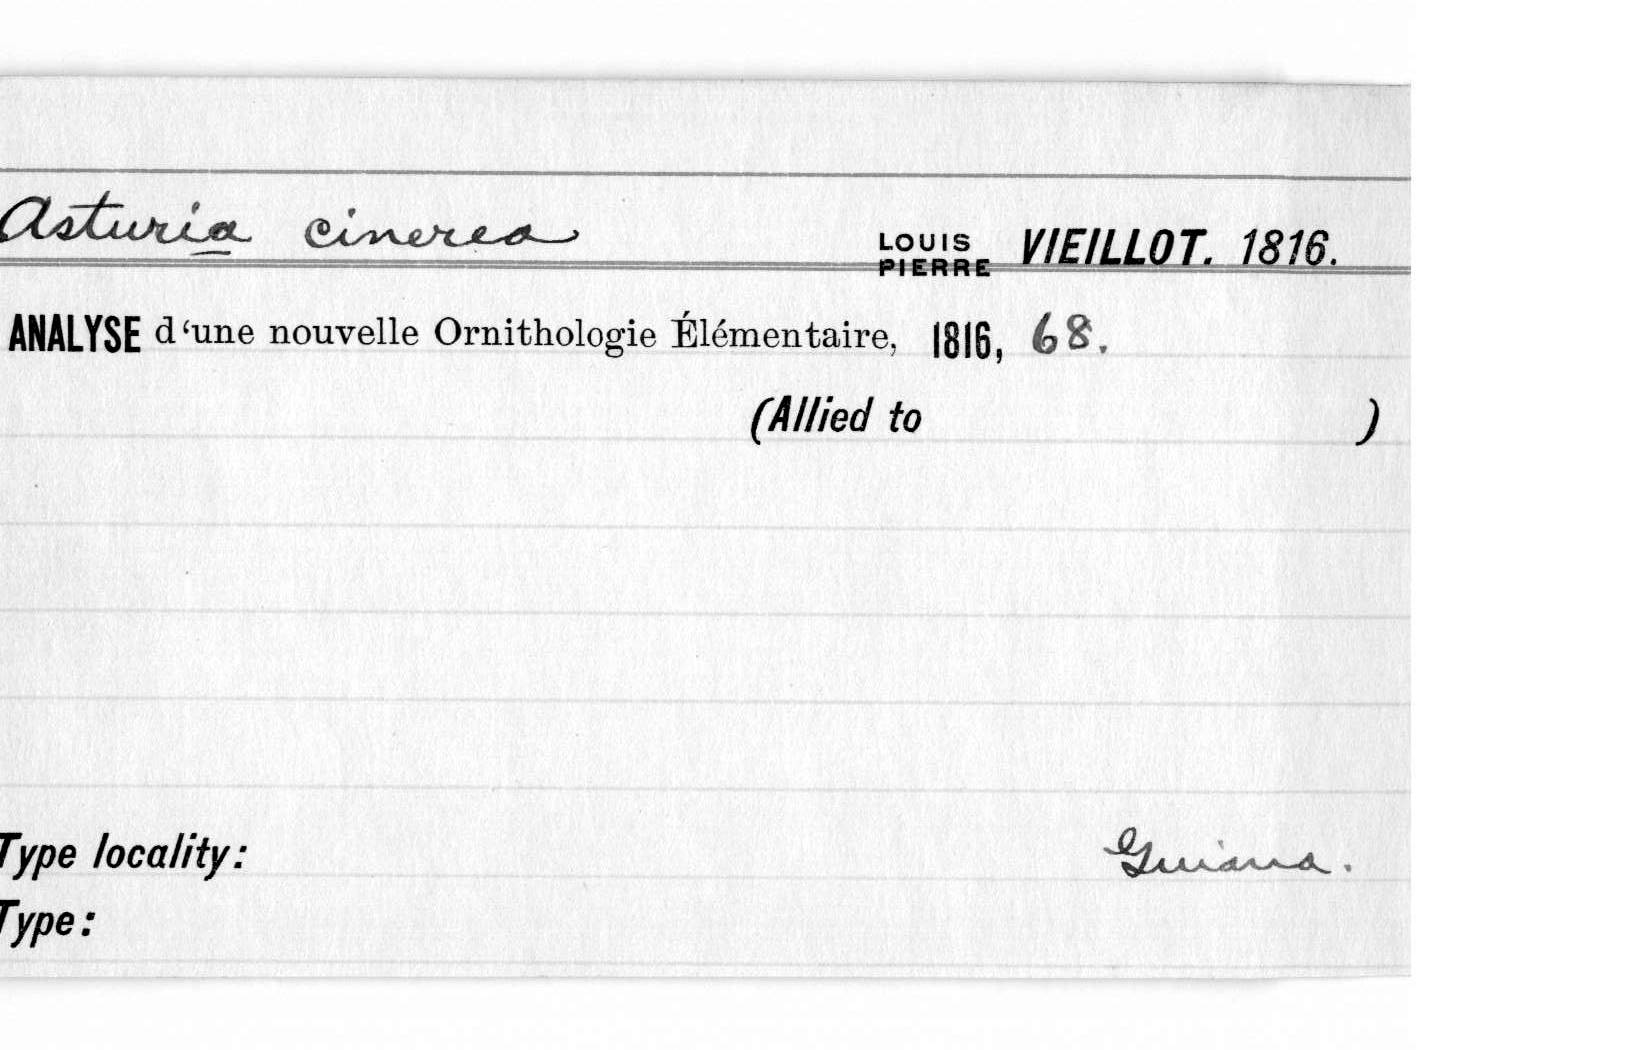 Asturia cinerea LOUIS PIERRE VIEILLOT. 1816.
ANALYSE d'une nouvelle Ornithologie Élémentaire, 1816, 68.
(Allied to )
Type locality: Guiana.
Type: